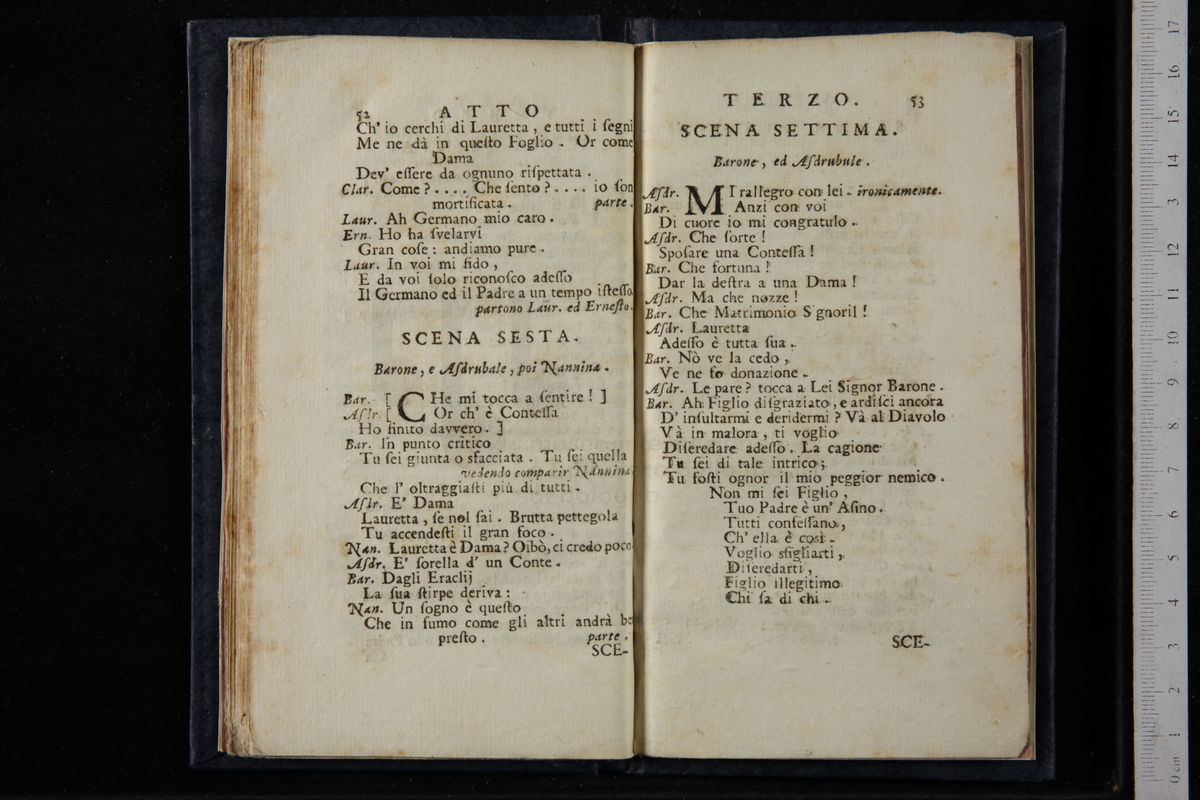 52 ATTO
Ch' io cerchi di Lauretta, e tutti i ſegni
Me ne dà in queſto Foglio. Or come
Dama
Dev' eſſere da ognuno riſpettata.
Clar. Come?.... Che ſento?.... io ſon
mortificata. parte.
Laur. Ah Germano mio caro.
Ern. Ho ha ſvelarvi
Gran coſe: andiamo pure.
Laur. In voi mi fido,
E da voi ſolo riconoſco adeſſo
Il Germano ed il Padre a un tempo iſteſſo
partono Laur. ed Erneſto.
SCENA SESTA.
Barone, e Aſdrubale, poi Nannina.
Bar. [ CHe mi tocca a ſentire! ]
Aſdr. [ Or ch' è Conteſſa
Ho finito davvero. ]
Bar. In punto critico
Tu ſei giunta o sfacciata. Tu ſei quella
vedendo comparir Nannina.
Che l' oltraggiaſti più di tutti.
Aſdr. E' Dama
Lauretta, ſe nol ſai. Brutta pettegola
Tu accendeſti il gran foco.
Nan. Lauretta è Dama? Oibò, ci credo poco
Aſdr. E' ſorella d' un Conte.
Bar. Dagli Eraclij
La ſua ſtirpe deriva:
Nan. Un ſogno è queſto
Che in fumo come gli altri andrà be
preſto. parte.
SCE-
TERZO. 53
SCENA SETTIMA.
Barone, ed Aſdrubule.
Aſdr. MI rallegro con lei. ironicamente.
Bar. Anzi con voi
Di cuore io mi congratulo.
Aſdr. Che ſorte!
Spoſare una Conteſſa!
Bar. Che fortuna!
Dar la deſtra a una Dama!
Aſdr. Ma che nozze!
Bar. Che Matrimonio Signoril!
Aſdr. Lauretta
Adeſſo è tutta ſua.
Bar. Nò ve la cedo,
Ve ne fo donazione.
Aſdr. Le pare? tocca a Lei Signor Barone.
Bar. Ah Figlio diſgraziato, e ardiſci ancora
D' inſultarmi e deridermi? Và al Diavolo
Và in malora, ti voglio
Diſeredare adeſſo. La cagione
Tu ſei di tale intrico;
Tu foſti ognor il mio peggior nemico.
Non mi ſei Figlio,
Tuo Padre è un' Aſino.
Tutti confeſſano,
Ch' ella è così.
Voglio sfigliarti,
Diſeredarti,
Figlio illegitimo
Chi ſa di chi.
SCE-
0 cm 1 2 3 4 5 6 7 8 9 10 11 12 13 14 15 16 17